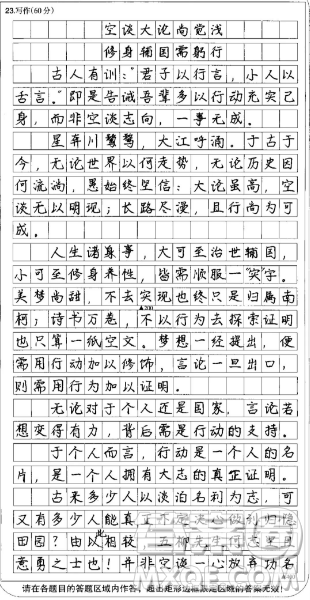 23.写作(60分)
空谈大论尚觉浅
修身辅国需躬行
古人有训:“君子以行言,小人以
舌言。”即是告诫吾辈多以行动充实己
身,而非空谈志向,一事无成。
星奔川鹜,大江呼涌。于古于
今,无论世界以何走势,无论历史因
何流淌,愚始终坚信:大论虽高,空
谈无以明现;长路尽漫,且行尚为可
成。
人生诸身事,大可至治世辅国,
小可至修身养性,皆需顺服一“实”字。
美梦尚甜,不去实现也终只是归属南
柯;诗书万卷,不以行为去探索证明
也只算一纸空文。梦想一经提出,便
需用行动加以修饰,言论一旦出口,
则需用行为加以证明。
无论对于个人还是国家,言论若
想变得有力,背后需是行动的支持。
于个人而言,行动是一个人的名
片,是一个人拥有大志的真正证明。
古来多少人以淡泊名利为志,可
又有多少人能真正不定决心做到归隐
田园?由以相较,五柳先生何志坚且
意勇之士也!并非空谈一心放弃功名
请在各题目的答题区域内作答,超出矩形边框限定区域的答案无效!